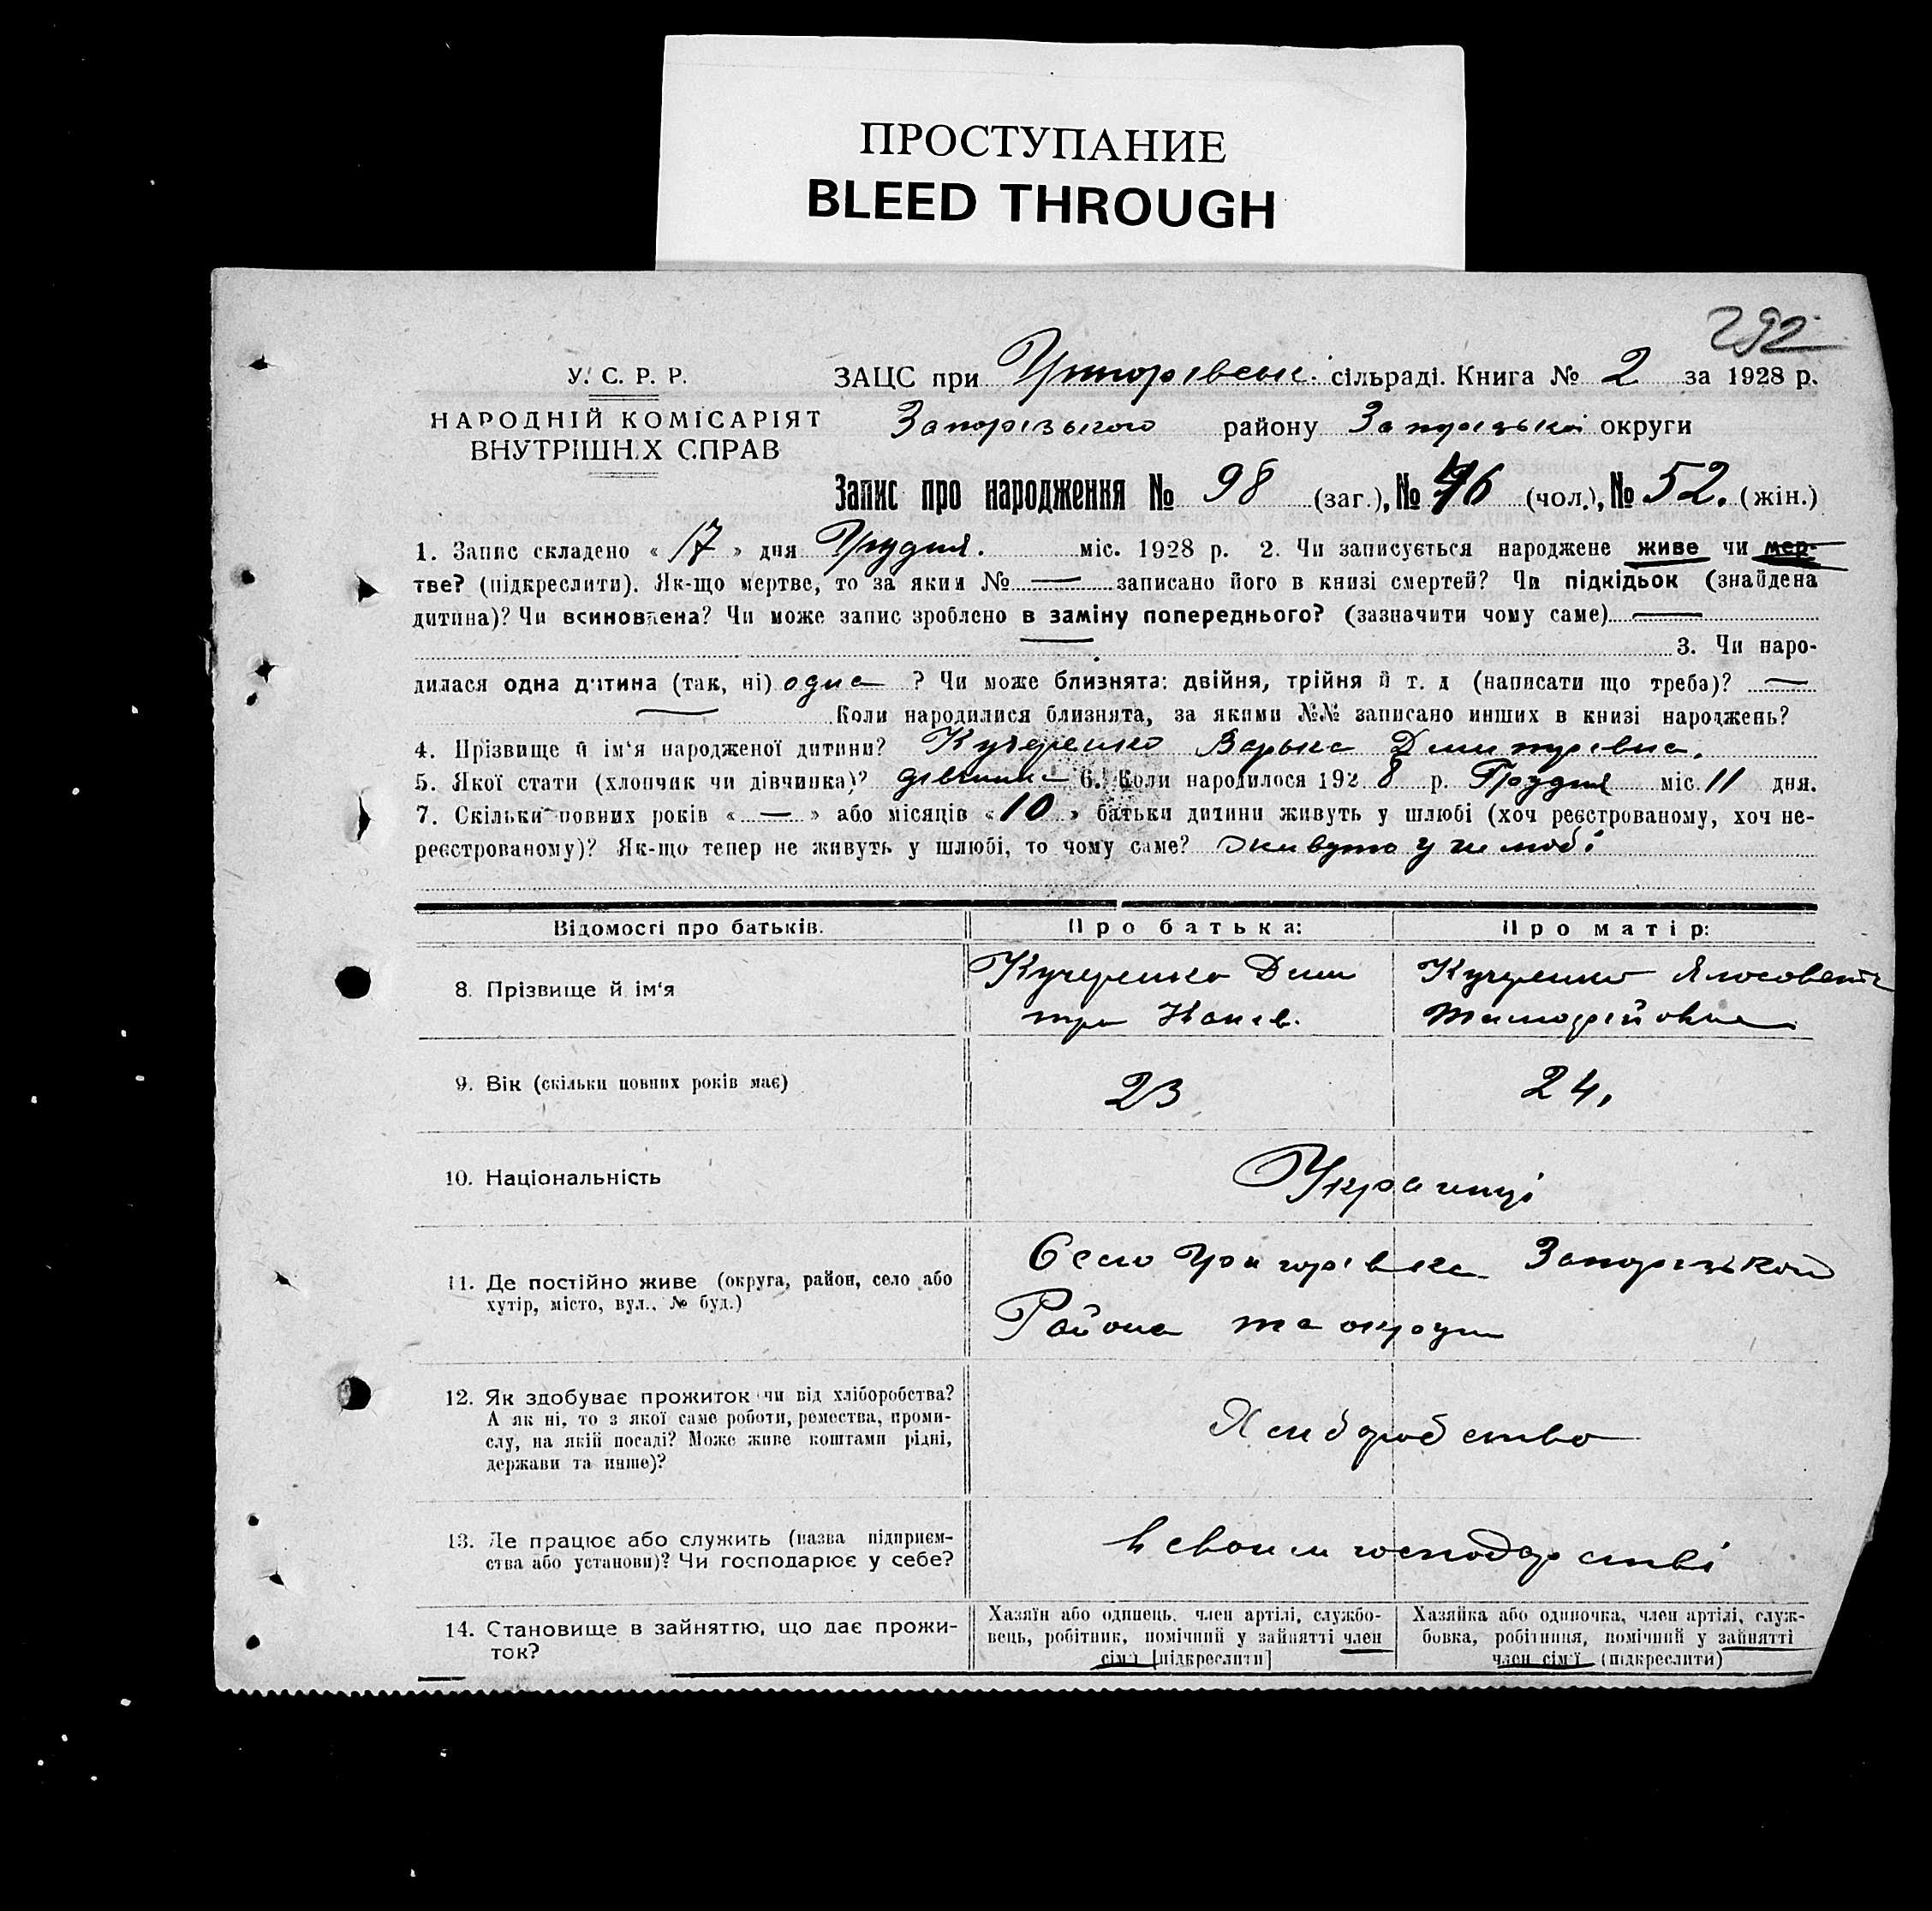 ПРОСТУПАНИЕ
BLEED THROUGH
292
У. С. Р. Р.
НАРОДНІЙ КОМІСАРІЯТ
ВНУТРІШНІХ СПРАВ
ЗАЦС при Григорівські сільраді. Книга № 2 за 1928 р.
Запорізького району Запорізької округи
Запис про народження № 98 (заг.), № 46 (чол.), № 52. (жін.)
1. Запис складено « 17 » дня Грудня. міс. 1928 р. 2. Чи записується народжене живе чи мер-
тве? (підкреслити). Як-що мертве, то за яким № — записано його в книзі смертей? Чи підкідьок (знайдена
дитина)? Чи всиновлена? Чи може запис зроблено в заміну попереднього? (зазначити чому саме) —
— 3. Чи наро-
дилася одна дитина (так, ні) одна ? Чи може близнята: двійня, трійня й т. д (написати що треба)? —
— Коли народилися близнята, за якими №№ записано инших в книзі народжень?
4. Прізвище й ім'я народженої дитини? Кучеренко Варька Дмитрівна.
5. Якої стати (хлопчик чи дівчинка)? дівчинка 6. Коли народилося 1928 р. Грудня міс. 11 дня.
7. Скільки повних років « — » або місяців « 10 » батьки дитини живуть у шлюбі (хоч реєстрованому, хоч не-
реєстрованому)? Як-що тепер не живуть у шлюбі, то чому саме? живуть у шлюбі
Відомості про батьків.
Про батька:
Про матір:
8. Прізвище й ім'я
Кучеренко Дми
тро
Кучеренко
Тимофійовна
9. Вік (скільки повних років має)
23
24,
10. Національність
Українці
11. Де постійно живе (округа, район, село або
хутір, місто, вул., № буд.)
Село Григорівка Запорізькой
Района та округи
12. Як здобуває прожиток чи від хліборобства?
А як ні, то з якої саме роботи, ремества, проми-
слу, на якій посаді? Може живе коштами рідні,
держави та инше)?
Хліборобство
13. Де працює або служить (назва підприєм-
ства або установи)? Чи господарює у себе?
В своим господарстві
14. Становище в зайняттю, що дає прожи-
ток?
Хазяїн або одинець, член артілі, службо-
вець, робітник, помічний у зайнятті член
сім'ї [підкреслити]
Хазяйка або одиночка, член артілі, служ-
бовка, робітниця, помічний у зайнятті
член сім'ї (підкреслити)